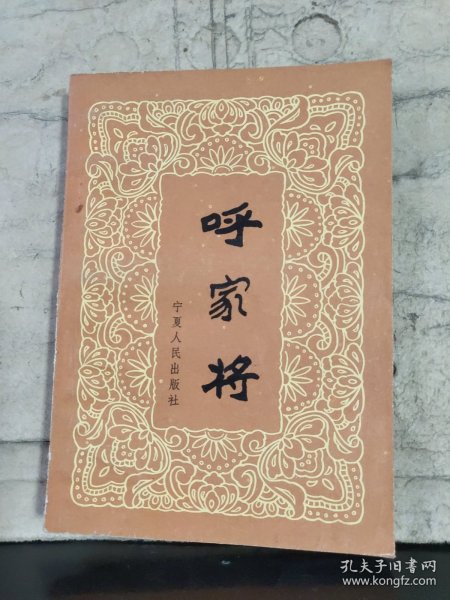 呼家将
宁夏人民出版社
孔夫子旧书网
www.kongfz.com